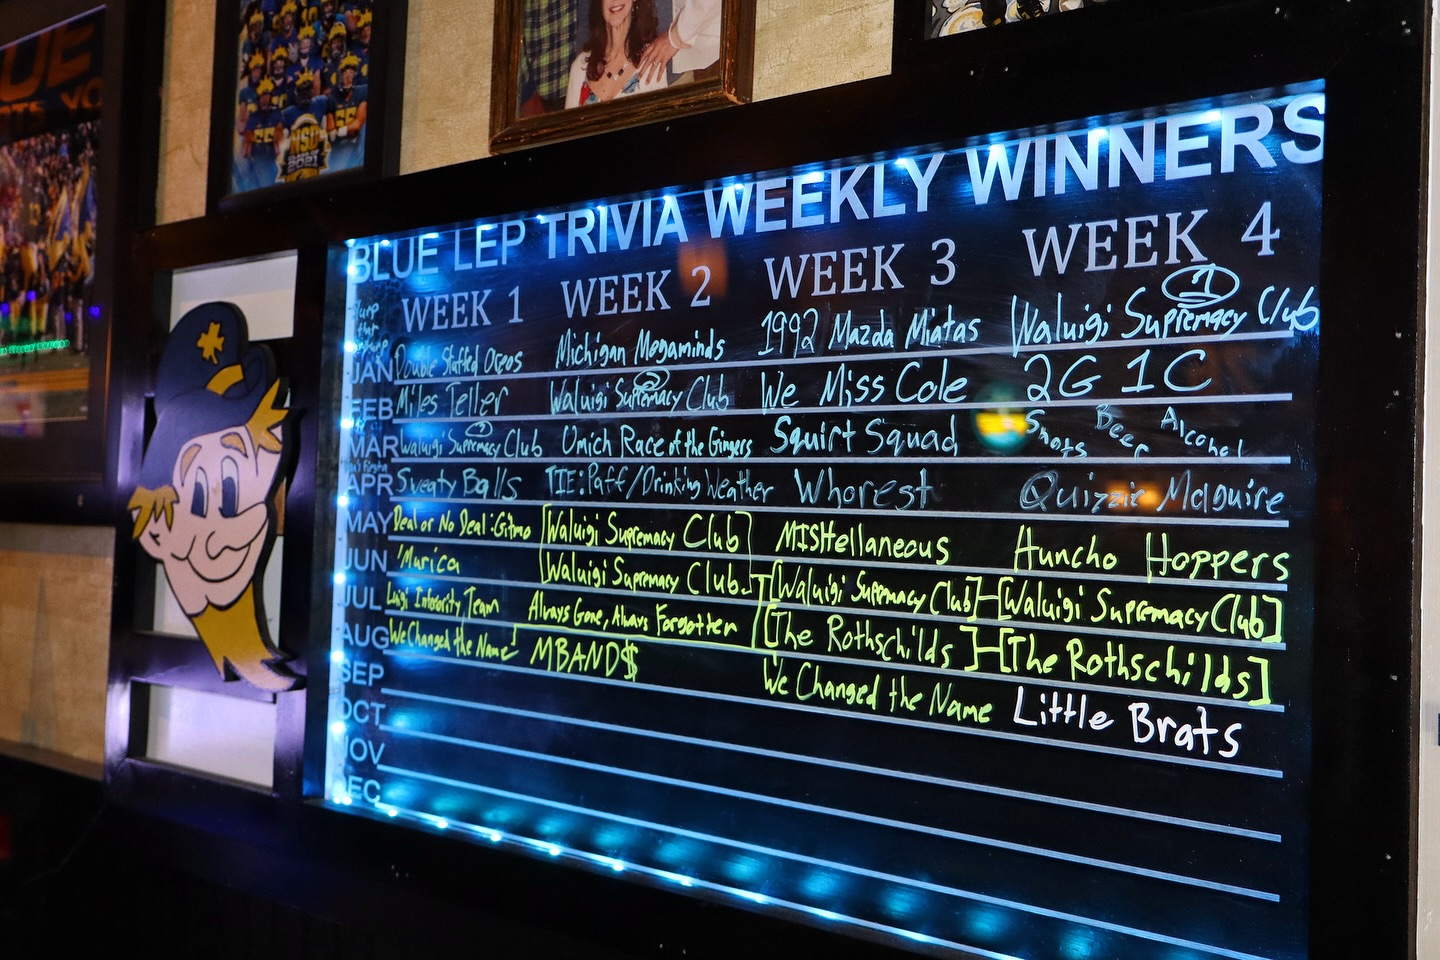 UE
NSD
2021
BLUE LEP TRIVIA WEEKLY WINNERS
WEEK 1 WEEK 2 WEEK 3 WEEK 4
JAN Double Stuffed Oreos Michigan Megaminds 1992 Mazda Miatas Waluigi Supremacy Club 1
FEB Miles Teller Waluigi Supremacy Club 2 We Miss Cole 2G 1C
MAR Waluigi Supremacy Club Umich Race of the Gingers Squirt Squad Shots Beer Alcohol
APR Sweaty Balls TIE: Paff/Drinking Weather Whorest Quizzie Maguire
MAY Deal or No Deal: Gitmo [Waluigi Supremacy Club] MISHtellaneous Huncho Hoppers
JUN 'Murica [Waluigi Supremacy Club] [Waluigi Supremacy Club] [Waluigi Supremacy Club]
JUL Luigi Inferiority Team Always Gone, Always Forgotten [The Rothschilds] [The Rothschilds]
AUG We Changed the Name MBAND$ We Changed the Name Little Brats
SEP
OCT
NOV
DEC